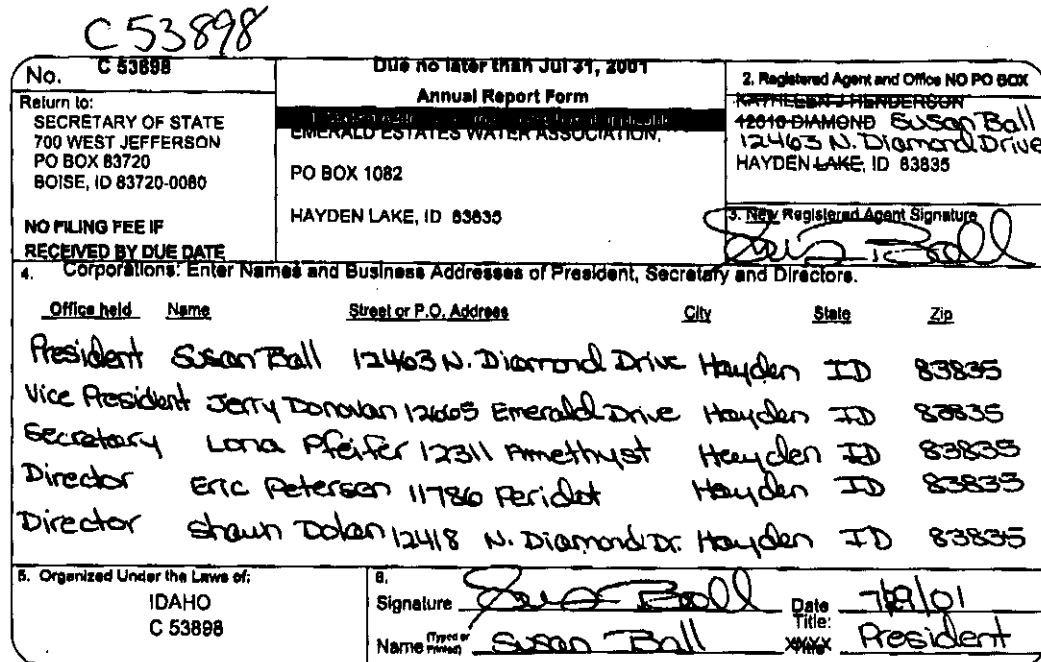 C 53898
No. C 53898
Return to:
SECRETARY OF STATE
700 WEST JEFFERSON
PO BOX 83720
BOISE, ID 83720-0080
NO FILING FEE IF
RECEIVED BY DUE DATE
Due no later than Jul 31, 2001
Annual Report Form
EMERALD ESTATES WATER ASSOCIATION,
PO BOX 1082
HAYDEN LAKE, ID 83835
2. Registered Agent and Office NO PO BOX
KATHLEEN J HENDERSON
12616 DIAMOND Susan Ball
12463 N. Diamond Drive
HAYDEN LAKE, ID 83835
3. New Registered Agent Signature
Susan Ball
4. Corporations: Enter Names and Business Addresses of President, Secretary and Directors.
Office held Name Street or P.O. Address City State Zip
President Susan Ball 12463 N. Diamond Drive Hayden ID 83835
Vice President Jerry Donovan 12665 Emerald Drive Hayden ID 83835
Secretary Lona Pfeifer 12311 Amethyst Hayden ID 83835
Director Eric Petersen 11786 Peridot Hayden ID 83835
Director Shawn Dolan 12418 N. Diamond Dr. Hayden ID 83835
5. Organized Under the Laws of:
IDAHO
C 53898
6.
Signature Susan Ball Date 7/29/01
Name (Typed or Printed) Susan Ball Title: President